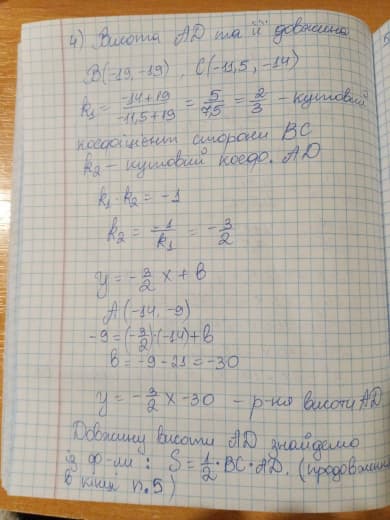 4) Висота AD та її довжина
B(-19, -19), C(-11,5, -14)
k₁ = (-14+19)/(-11,5+19) = 5/7,5 = 2/3 - кутовий
коефіцієнт сторони BC
k₂ - кутовий коеф. AD
k₁ · k₂ = -1
k₂ = -1/k₁ = -3/2
y = -3/2 x + b
A(-14, -9)
-9 = (-3/2)·(-14) + b
b = -9 - 21 = -30
y = -3/2 x - 30 - р-ня висоти AD
Довжину висоти AD знайдемо
із ф-ли: S = 1/2 · BC · AD. (продовження
в кінці п.5)